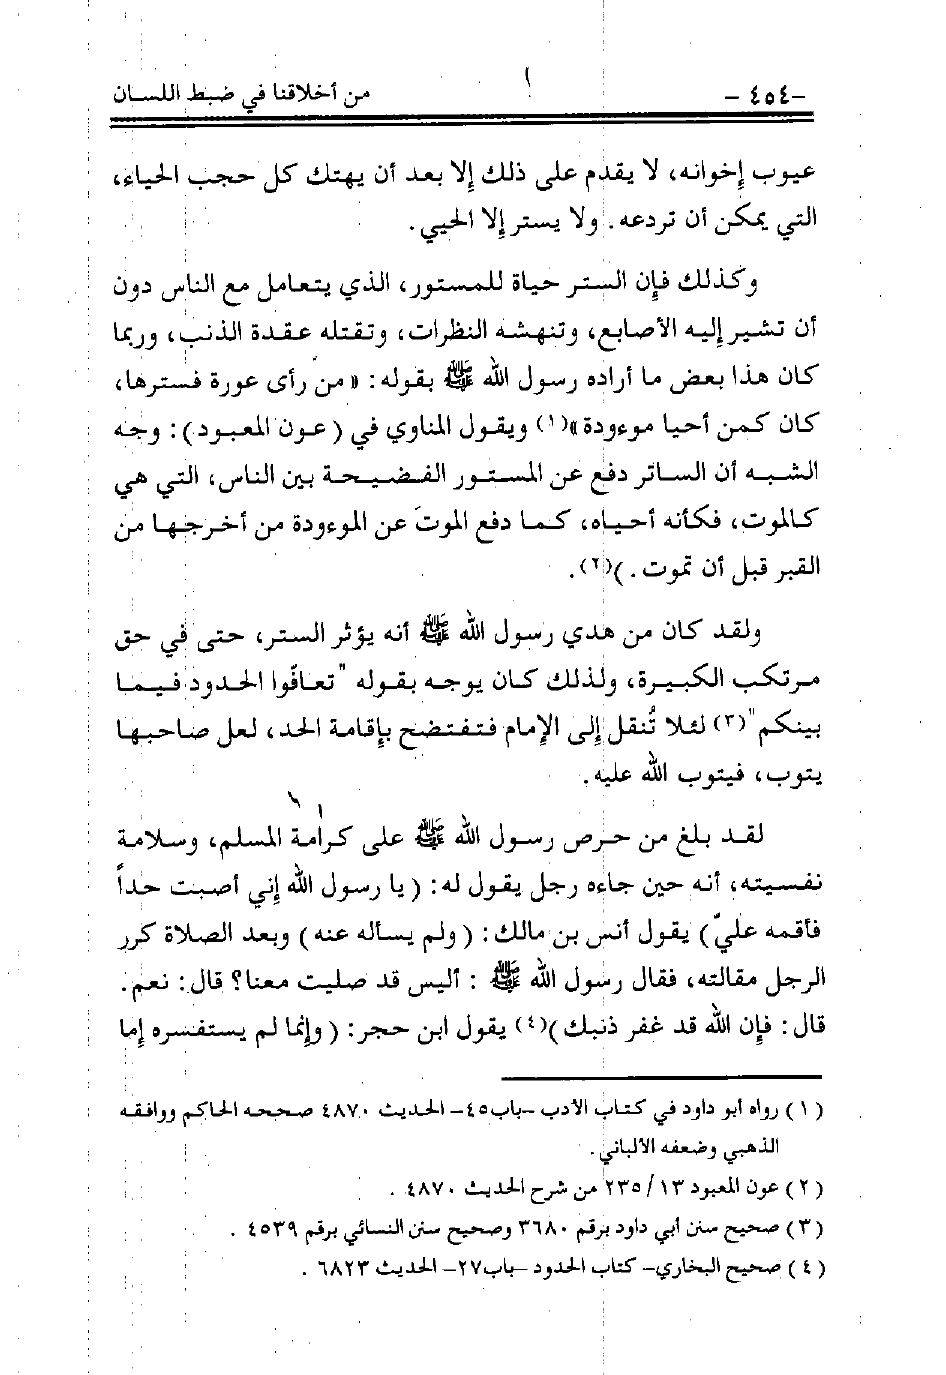 -٤٥٤ - من أخلاقنا في ضبط اللسان
عيوب إخوانه، لا يقدم على ذلك إلا بعد أن يهتك كل حجب الحياء،
التي يمكن أن تردعه. ولا يستر إلا الحيي.
وكذلك فإن الستر حياة للمستور، الذي يتعامل مع الناس دون
أن تشير إليه الأصابع، وتنهشه النظرات، وتقتله عقدة الذنب، وربما
كان هذا بعض ما أراده رسول الله ﷺ بقوله: « من رأى عورة فسترها،
كان كمن أحيا موءودة »(١) ويقول المناوي في (عون المعبود): وجه
الشبه أن الساتر دفع عن المستور الفضيحة بين الناس، التي هي
كالموت، فكأنه أحياه، كما دفع الموتَ عن الموءودة من أخرجها من
القبر قبل أن تموت. )(٢).
ولقد كان من هدي رسول الله ﷺ أنه يؤثر الستر، حتى في حق
مرتكب الكبيرة، ولذلك كان يوجه بقوله "تعافّوا الحدود فيما
بينكم"(٣) لئلا تُنقل إلى الإمام فتفتضح بإقامة الحد، لعل صاحبها
يتوب، فيتوب الله عليه.
لقد بلغ من حرص رسول الله ﷺ على كرامة المسلم، وسلامة
نفسيته، أنه حين جاءه رجل يقول له: ( يا رسول الله إني أصبت حداً
فأقمه عليّ) يقول أنس بن مالك: ( ولم يسأله عنه) وبعد الصلاة كرر
الرجل مقالته، فقال رسول الله ﷺ : أليس قد صليت معنا؟ قال: نعم.
قال: فإن الله قد غفر ذنبك)(٤) يقول ابن حجر: ( وإنما لم يستفسره إما
(١) رواه أبو داود في كتاب الأدب -باب٤٥- الحديث ٤٨٧٠ صححه الحاكم ووافقه
الذهبي وضعفه الألباني.
(٢) عون المعبود ٢٣٥/١٣ من شرح الحديث ٤٨٧٠ .
(٣) صحيح سنن أبي داود برقم ٣٦٨٠ وصحيح سنن النسائي برقم ٤٥٣٩ .
(٤) صحيح البخاري- كتاب الحدود -باب٢٧- الحديث ٦٨٢٣ .